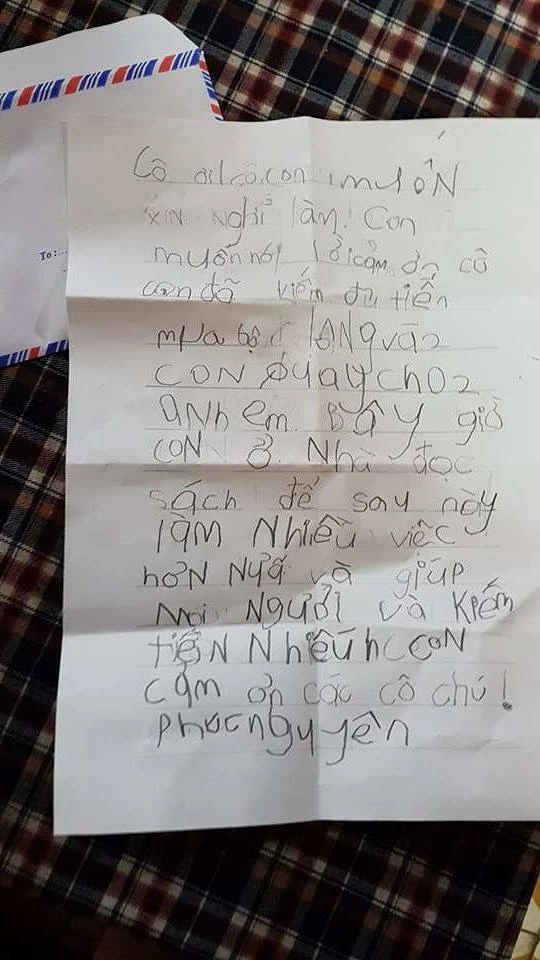 To:...
Cô ơi! cô, con muốN
xiN Nghỉ làm! Con
muốn nói lời cảm ơn cô
con đã kiếm đủ tiền
mua bộ lANg và 2
coN quay cho 2
anh em. Bây giờ
coN ở Nhà đọc
sách để say này
làm Nhiều việc
hơN Nữa và giúp
mọi Người và kiếm
tiềN Nhiều h coN
cảm ơn các cô chú!
phúc nguyên